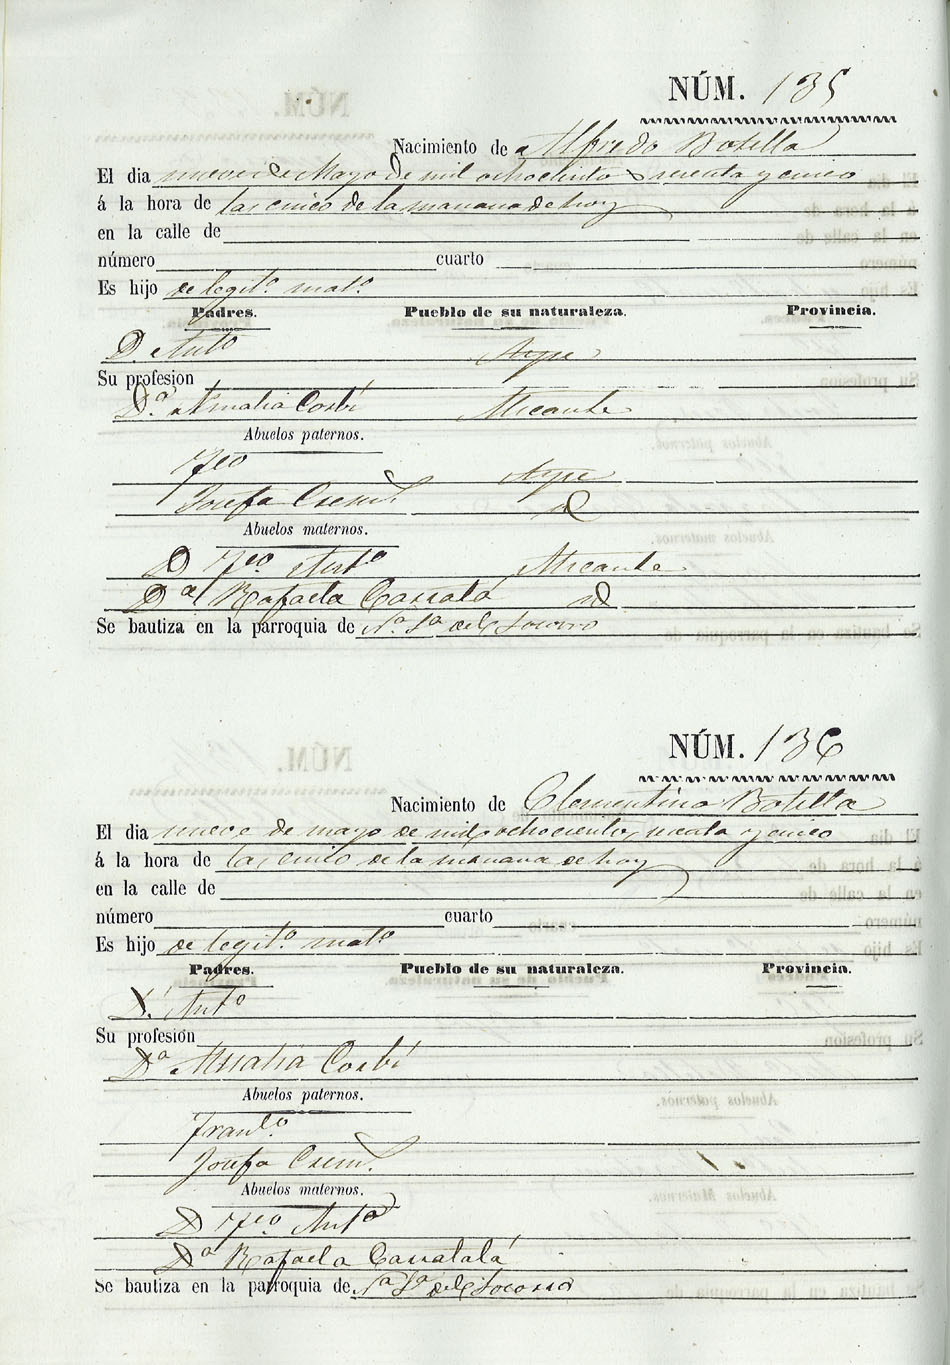 NÚM. 135
Nacimiento de Alfredo Botella
El dia nueve de Mayo de mil ochociento s secenta y cinco
á la hora de las cinco de la mañana de hoy
en la calle de
número cuarto
Es hijo de legit.º mat.º
Padres. Pueblo de su naturaleza. Provincia.
D. Ant.º Aspe
Su profesion
D.ª Amalia Corbí Alicante
Abuelos paternos.
Fco Aspe
Josefa
Abuelos maternos.
D Fco Ant.º Alicante
D.ª Rafaela Carratalá id
Se bautiza en la parroquia de N.ª S.ª del Socorro
NÚM. 136
Nacimiento de Clementino Botella
El dia nueve de mayo de mil ochociento, secenta y cinco
á la hora de las cinco de la mañana de hoy
en la calle de
número cuarto
Es hijo de legit.º mat.º
Padres. Pueblo de su naturaleza. Provincia.
D. Ant.º
Su profesión
D.ª Amalia Corbí
Abuelos paternos.
Fran.co
Josefa
Abuelos maternos.
D Fco Ant.º
D.ª Rafaela Carratalá
Se bautiza en la parroquia de N.ª S.ª del Socorro